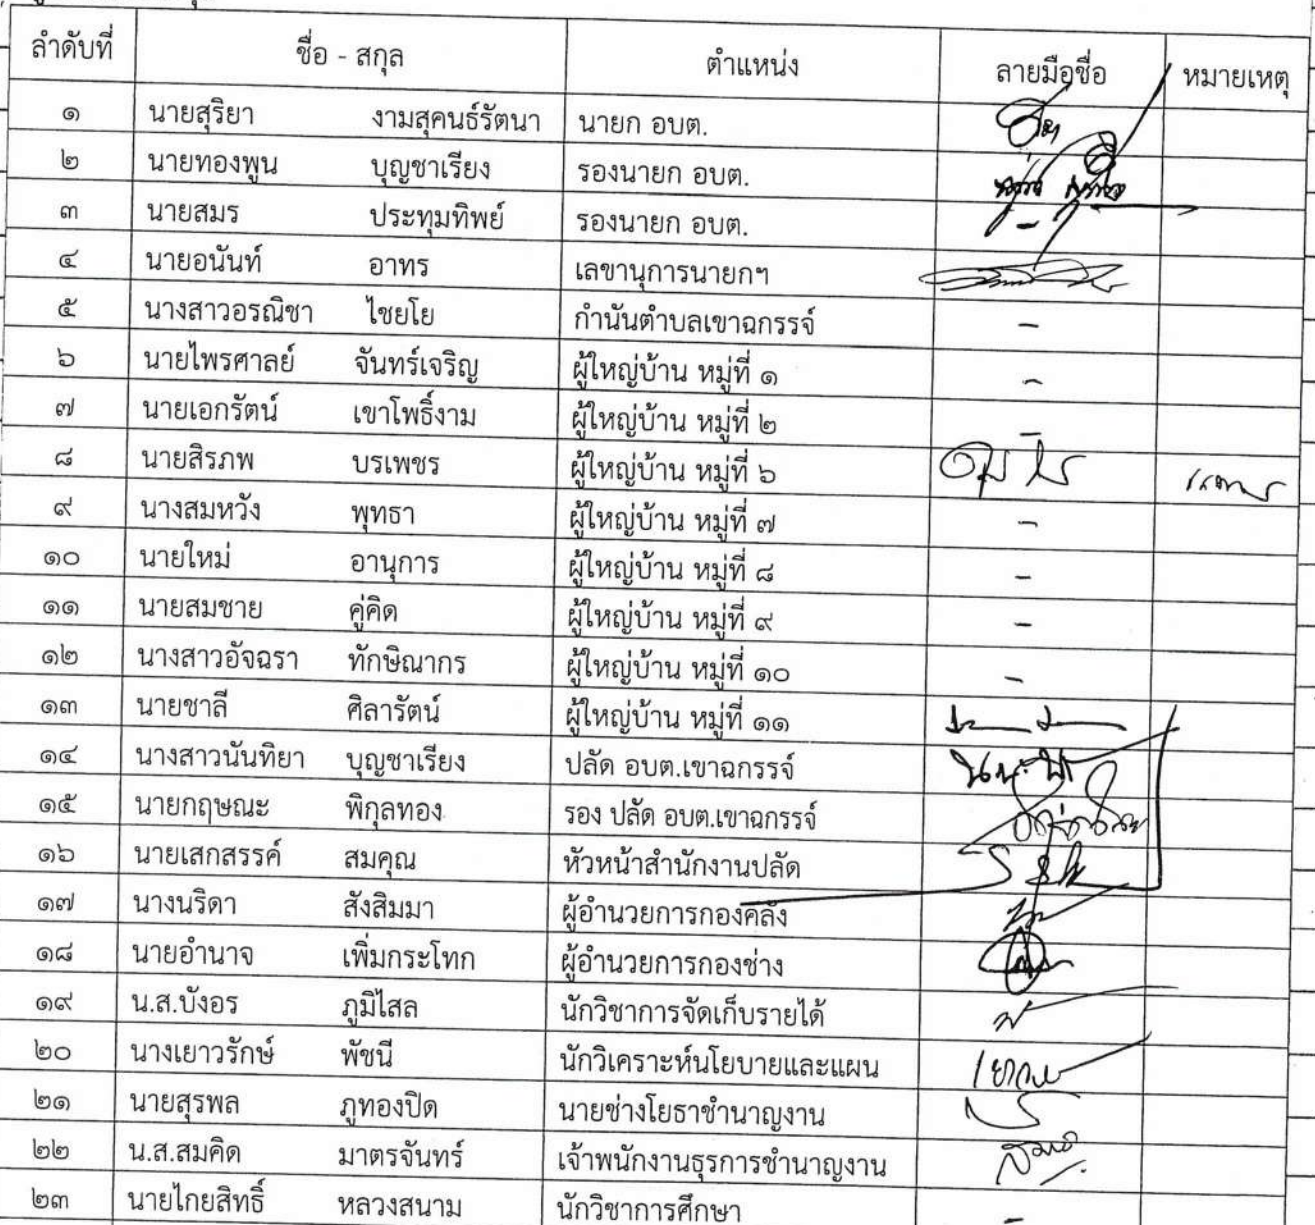 ลำดับที่ ชื่อ - สกุล ตำแหน่ง ลายมือชื่อ หมายเหตุ
๑ นายสุริยา งามสุคนธ์รัตนา นายก อบต.
๒ นายทองพูน บุญชาเรียง รองนายก อบต.
๓ นายสมร ประทุมทิพย์ รองนายก อบต. -
๔ นายอนันท์ อาทร เลขานุการนายกฯ
๕ นางสาวอรณิชา ไชยโย กำนันตำบลเขาฉกรรจ์ -
๖ นายไพรศาลย์ จันทร์เจริญ ผู้ใหญ่บ้าน หมู่ที่ ๑ -
๗ นายเอกรัตน์ เขาโพธิ์งาม ผู้ใหญ่บ้าน หมู่ที่ ๒ -
๘ นายสิรภพ บรเพชร ผู้ใหญ่บ้าน หมู่ที่ ๖
๙ นางสมหวัง พุทธา ผู้ใหญ่บ้าน หมู่ที่ ๗ -
๑๐ นายใหม่ อานุการ ผู้ใหญ่บ้าน หมู่ที่ ๘ -
๑๑ นายสมชาย คู่คิด ผู้ใหญ่บ้าน หมู่ที่ ๙ -
๑๒ นางสาวอัจฉรา ทักษิณากร ผู้ใหญ่บ้าน หมู่ที่ ๑๐ -
๑๓ นายชาลี ศิลารัตน์ ผู้ใหญ่บ้าน หมู่ที่ ๑๑
๑๔ นางสาวนันทิยา บุญชาเรียง ปลัด อบต.เขาฉกรรจ์
๑๕ นายกฤษณะ พิกุลทอง รอง ปลัด อบต.เขาฉกรรจ์
๑๖ นายเสกสรรค์ สมคุณ หัวหน้าสำนักงานปลัด
๑๗ นางนริดา สังสิมมา ผู้อำนวยการกองคลัง
๑๘ นายอำนาจ เพิ่มกระโทก ผู้อำนวยการกองช่าง
๑๙ น.ส.บังอร ภูมิไสล นักวิชาการจัดเก็บรายได้
๒๐ นางเยาวรักษ์ พัชนี นักวิเคราะห์นโยบายและแผน
๒๑ นายสุรพล ภูทองปิด นายช่างโยธาชำนาญงาน
๒๒ น.ส.สมคิด มาตรจันทร์ เจ้าพนักงานธุรการชำนาญงาน
๒๓ นายไกยสิทธิ์ หลวงสนาม นักวิชาการศึกษา -